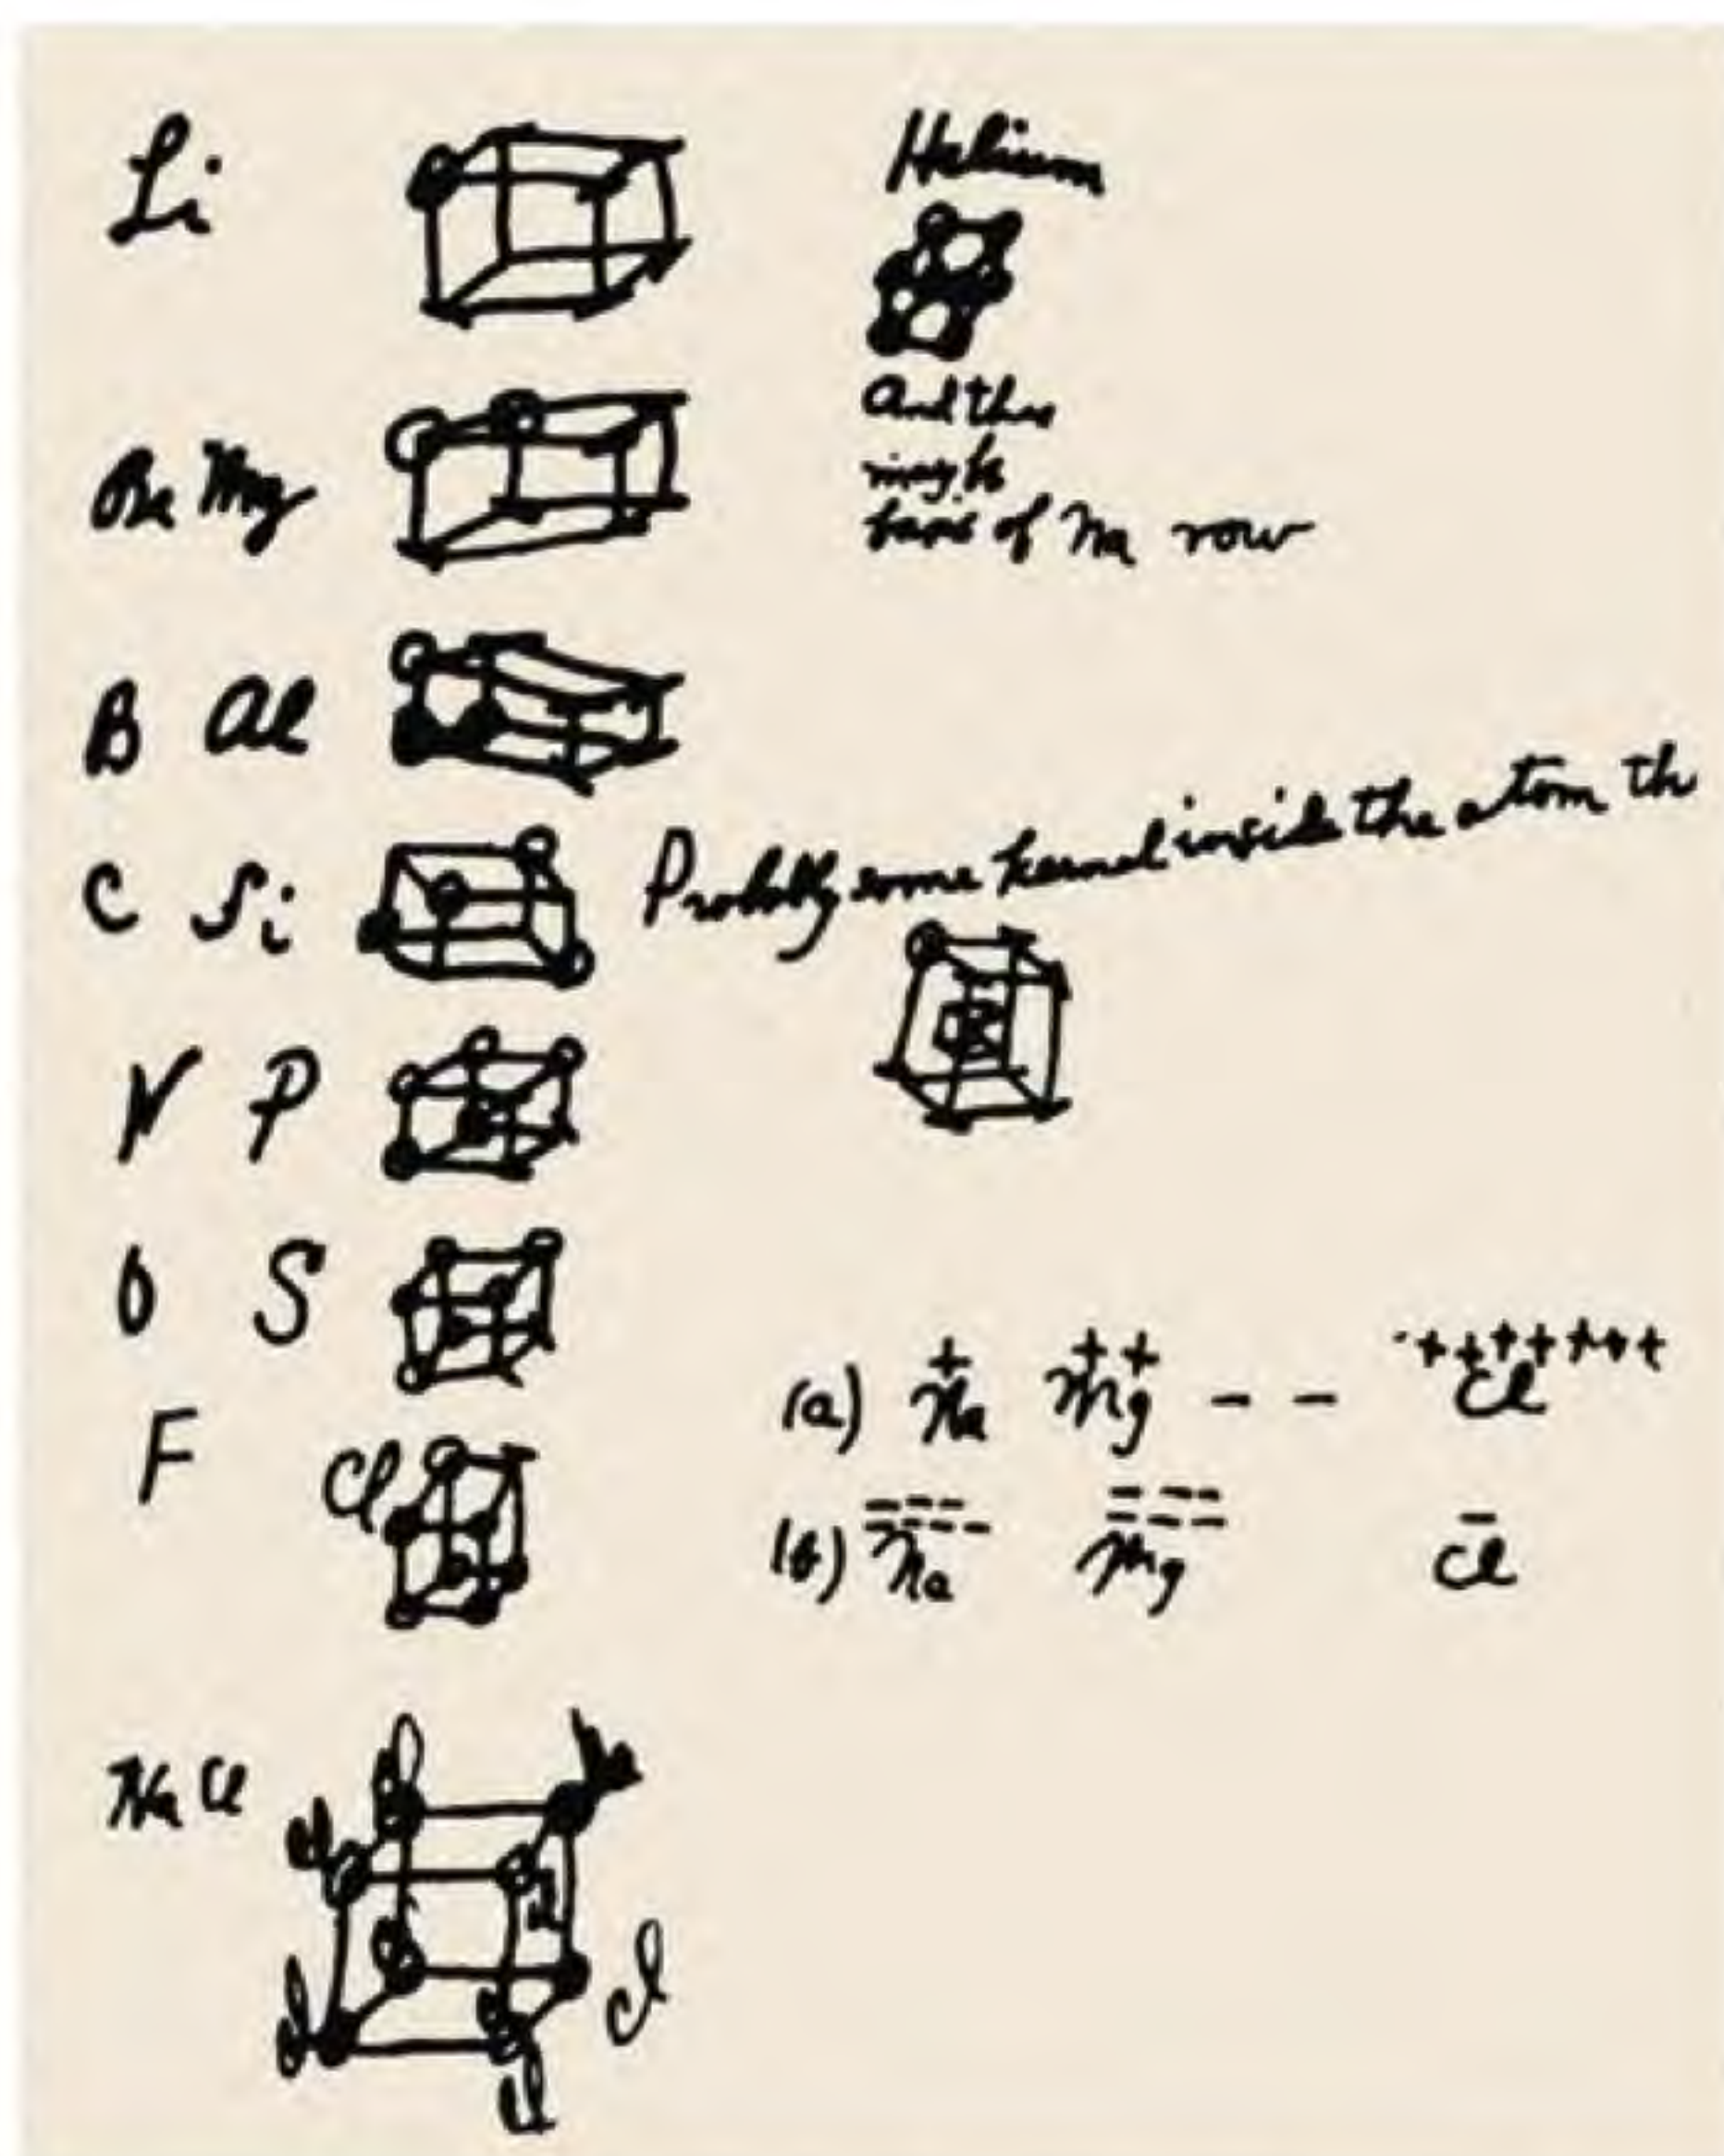 Li
Helium
And this
may be
basis of Na row
Be Mg
B Al
C Si
Probably some kernel inside the atom th
N P
O S
F Cl
(a) + Na ++ Mg - - +++++++ Cl
(b) ------- Na ------ Mg - Cl
Na Cl
Cl
Cl
Cl
Cl
Cl